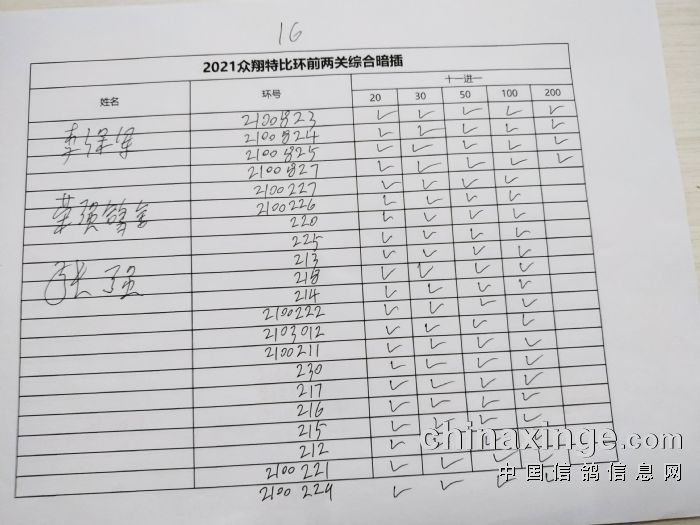 16
2021众翔特比环前两关综合暗插
姓名 环号 十一进一
20 30 50 100 200
2100823 ✓ ✓ ✓ ✓ ✓
2100824 ✓ ✓ ✓ ✓ ✓
2100825 ✓ ✓ ✓ ✓ ✓
2100827 ✓ ✓ ✓ ✓ ✓
2100227 ✓ ✓ ✓ ✓
2100226 ✓ ✓ ✓ ✓
220 ✓ ✓ ✓ ✓
225 ✓ ✓ ✓ ✓
213 ✓ ✓ ✓ ✓
218 ✓ ✓ ✓ ✓
214 ✓ ✓ ✓ ✓
2100222 ✓ ✓ ✓ ✓
2103012 ✓ ✓ ✓ ✓
2100211 ✓ ✓ ✓ ✓
230 ✓ ✓ ✓ ✓
217 ✓ ✓ ✓ ✓
216 ✓ ✓ ✓ ✓
215 ✓ ✓ ✓ ✓
212 ✓ ✓ ✓ ✓
2100221 ✓ ✓ ✓ ✓
2100224 ✓ ✓ ✓ ✓
chinaxinge.com
中国信鸽信息网